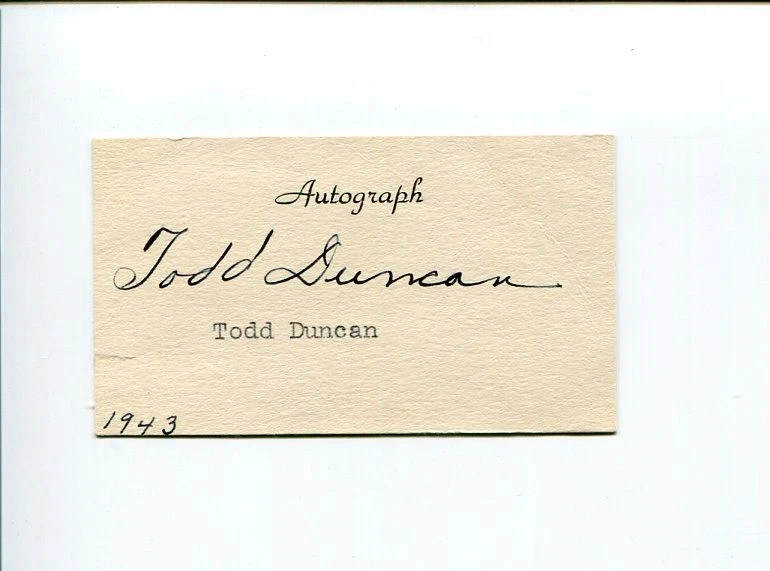 Autograph
Todd Duncan
Todd Duncan
1943